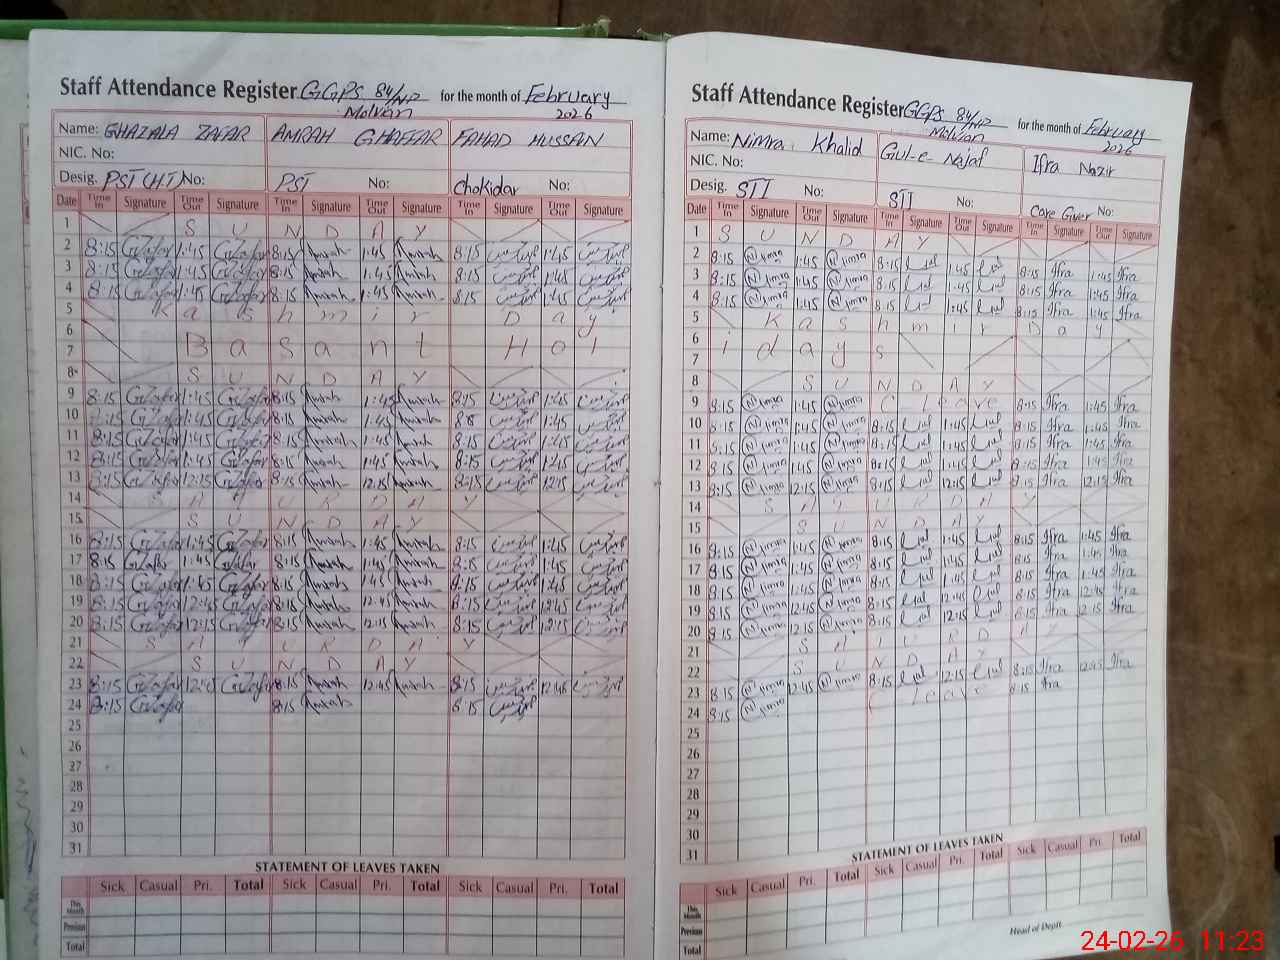 Staff Attendance Register GGPS 84/NP Molvian for the month of February 2026
Name: GHAZALA ZAFAR AMRAH GHAFFAR FAHAD HUSSAIN
NIC. No:
Desig. PST (H.T) No: PST No: Chokidar No:
Date Time In Signature Time Out Signature Time In Signature Time Out Signature Time In Signature Time Out Signature
1 S U N D A Y
2 8:15 GZafar 1:45 GZafar 8:15 Amrah 1:45 Amrah 8:15 1:45
3 8:15 GZafar 1:45 GZafar 8:15 Amrah 1:45 Amrah 8:15 1:45
4 8:15 GZafar 1:45 GZafar 8:15 Amrah 1:45 Amrah 8:15 1:45
5 K a s h m i r D a y
6
7 B a s a n t H o l
8 S U N D A Y
9 8:15 GZafar 1:45 GZafar 8:15 Amrah 1:45 Amrah 8:15 1:45
10 8:15 GZafar 1:45 GZafar 8:15 Amrah 1:45 Amrah 1:45
11 8:15 GZafar 1:45 GZafar 8:15 Amrah 1:45 Amrah 8:15 1:45
12 8:15 GZafar 1:45 GZafar 8:15 Amrah 1:45 Amrah 8:15 1:45
13 8:15 GZafar 12:15 GZafar 8:15 Amrah 12:15 Amrah 8:15 12:15
14 S A T U R D A Y
15 S U N D A Y
16 8:15 GZafar 1:45 GZafar 8:15 Amrah 1:45 Amrah 8:15 1:45
17 8:15 GZafar 1:45 GZafar 8:15 Amrah 1:45 Amrah 8:15 1:45
18 8:15 GZafar 1:45 GZafar 8:15 Amrah 1:45 Amrah 8:15 1:45
19 8:15 GZafar 12:45 GZafar 8:15 Amrah 12:45 Amrah 8:15 12:45
20 8:15 GZafar 12:15 GZafar 8:15 Amrah 12:15 Amrah 8:15 12:15
21 S A T U R D A Y
22 S U N D A Y
23 8:15 GZafar 12:45 GZafar 8:15 Amrah 12:45 Amrah 8:15 12:45
24 8:15 GZafar 8:15 Amrah 8:15
25
26
27
28
29
30
31
STATEMENT OF LEAVES TAKEN
Sick Casual Pri. Total Sick Casual Pri. Total Sick Casual Pri. Total
This Month
Previous
Total
Staff Attendance Register GGPS 84/NP Molvian for the month of February 2026
Name: Nimra Khalid Gul-e-Najaf Ifra Nazir
NIC. No:
Desig. STI No: STI No: Care Giver No:
Date Time In Signature Time Out Signature Time In Signature Time Out Signature Time In Signature Time Out Signature
1 S U N D A Y
2 8:15 Nimra 1:45 Nimra 8:15 1:45 8:15 Ifra 1:45 Ifra
3 8:15 Nimra 1:45 Nimra 8:15 1:45 8:15 Ifra 1:45 Ifra
4 8:15 Nimra 1:45 Nimra 8:15 1:45 8:15 Ifra 1:45 Ifra
5 K a s h m i r D a y
6
7 i d a y s
8 S U N D A Y
9 8:15 Nimra 1:45 Nimra C Leave 8:15 Ifra 1:45 Ifra
10 8:15 Nimra 1:45 Nimra 8:15 1:45 8:15 Ifra 1:45 Ifra
11 8:15 Nimra 1:45 Nimra 8:15 1:45 8:15 Ifra 1:45 Ifra
12 8:15 Nimra 1:45 Nimra 8:15 1:45 8:15 Ifra 1:45 Ifra
13 8:15 Nimra 12:15 Nimra 8:15 12:15 8:15 Ifra 12:15 Ifra
14 S A T U R D A Y
15 S U N D A Y
16 8:15 Nimra 1:45 Nimra 8:15 1:45 8:15 Ifra 1:45 Ifra
17 8:15 Nimra 1:45 Nimra 8:15 1:45 8:15 Ifra 1:45 Ifra
18 8:15 Nimra 1:45 Nimra 8:15 1:45 8:15 Ifra 1:45 Ifra
19 8:15 Nimra 12:45 Nimra 8:15 12:45 8:15 Ifra 12:45 Ifra
20 8:15 Nimra 12:15 Nimra 8:15 12:15 8:15 Ifra 12:15 Ifra
21 S A T U R D A Y
22 S U N D A Y
23 8:15 Nimra 12:45 Nimra 8:15 12:15 8:15 Ifra 12:45 Ifra
24 8:15 Nimra C Leave 8:15 Ifra
25
26
27
28
29
30
31
STATEMENT OF LEAVES TAKEN
Sick Casual Pri. Total Sick Casual Pri. Total Sick Casual Pri. Total
This Month
Previous
Total
Head of Deptt.
24-02-26 11:23